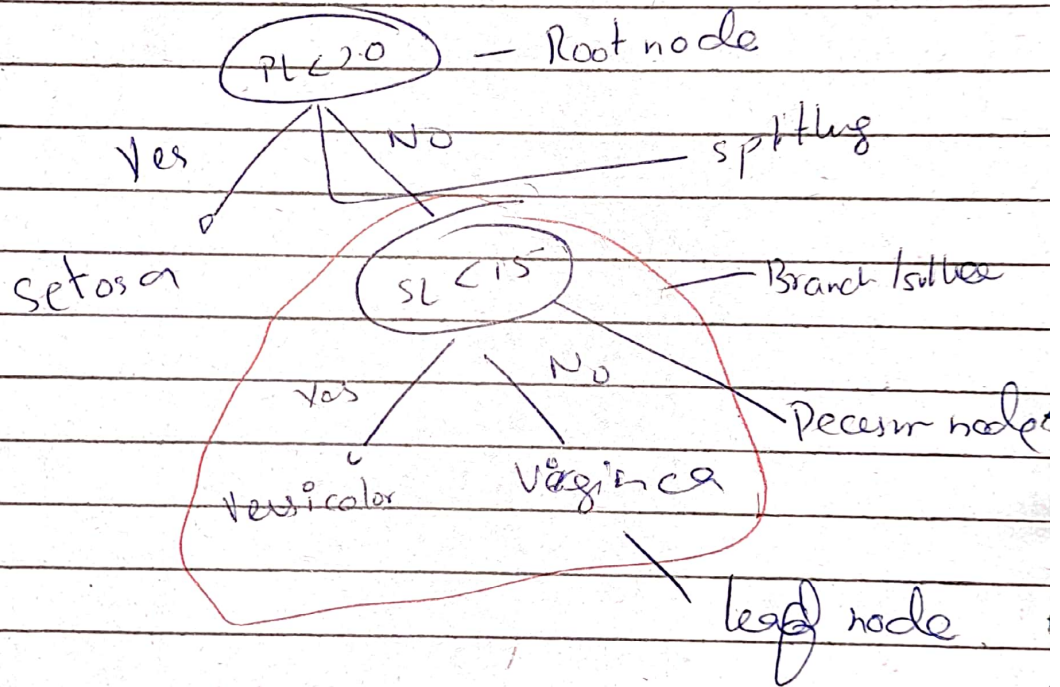 PL < 2.0 - Root node
Yes
NO
splitting
Setosa
SL < 1.5
Branch /
Yes
No
node
Versicolor
Virginca
leaf node